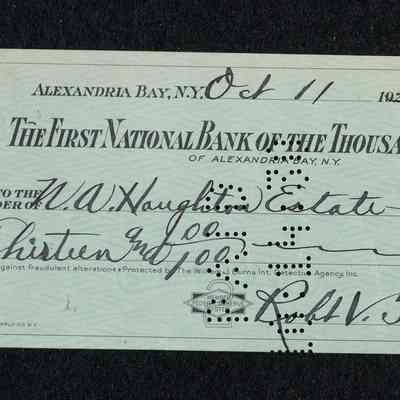 ALEXANDRIA BAY, N.Y. Oct 11 192
THE FIRST NATIONAL BANK OF THE THOUSA
OF ALEXANDRIA BAY, N.Y.
TO THE
DER OF W. A. Houghton Estate
Thirteen and 00/100
against fraudulent alterations Protected by The William J Burns Int. Detective Agency Inc.
MEMBER
FEDERAL RESERVE
SYSTEM
2
Robt V.